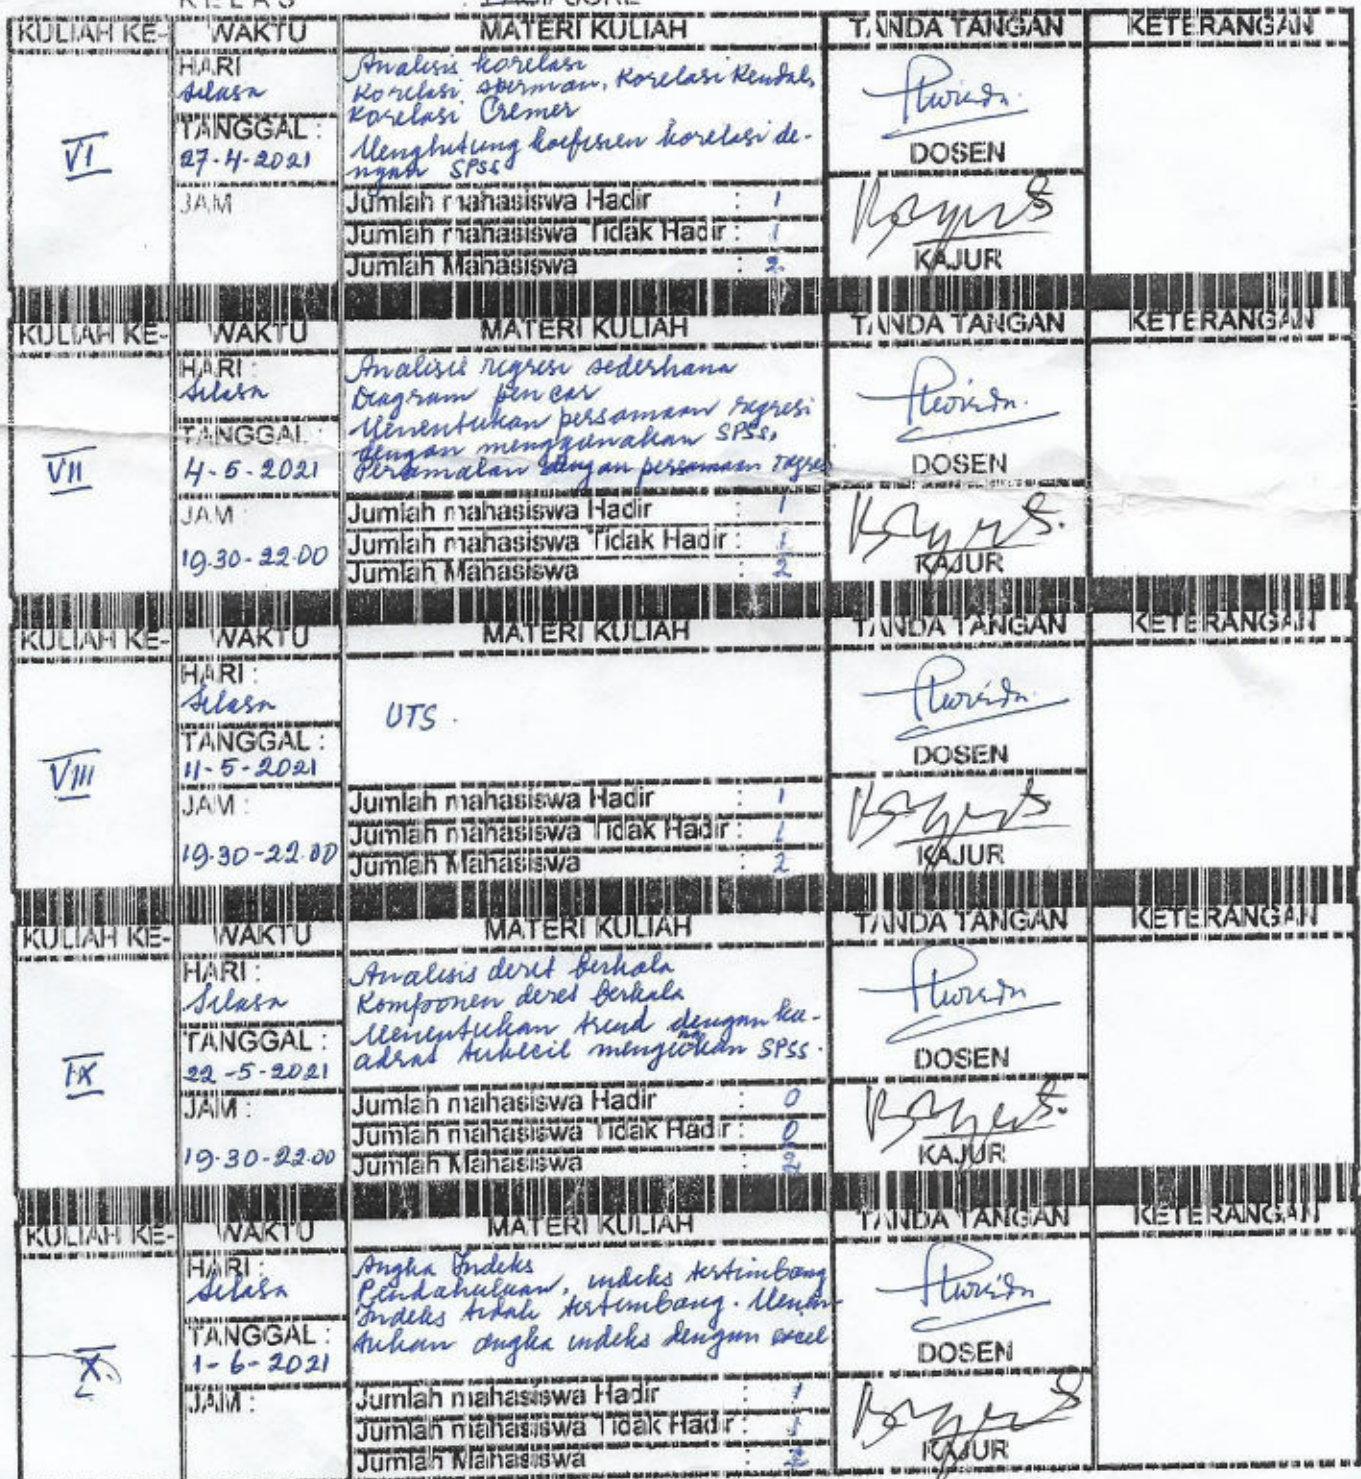 KELAS : PAGI/SORE
KULIAH KE- WAKTU MATERI KULIAH TANDA TANGAN KETERANGAN
VI
HARI
Selasa
TANGGAL :
27-4-2021
JAM
Analisis korelasi
Korelasi sperman, Korelasi Kendal,
Korelasi Cremer
Menghitung koefisien korelasi de-
ngan SPSS
Jumlah mahasiswa Hadir : 1
Jumlah mahasiswa Tidak Hadir : 1
Jumlah Mahasiswa : 2
DOSEN
KAJUR
KULIAH KE- WAKTU MATERI KULIAH TANDA TANGAN KETERANGAN
VII
HARI :
Selasa
TANGGAL :
4-5-2021
JAM :
19.30-22.00
Analisis regresi sederhana
Diagram pencar
Menentukan persamaan regresi
dengan menggunakan SPSS,
Peramalan dengan persamaan regresi
Jumlah mahasiswa Hadir : 1
Jumlah mahasiswa Tidak Hadir : 1
Jumlah Mahasiswa : 2
DOSEN
KAJUR
KULIAH KE- WAKTU MATERI KULIAH TANDA TANGAN KETERANGAN
VIII
HARI :
Selasa
TANGGAL :
11-5-2021
JAM :
19.30-22.00
UTS.
Jumlah mahasiswa Hadir : 1
Jumlah mahasiswa Tidak Hadir : 1
Jumlah Mahasiswa : 2
DOSEN
KAJUR
KULIAH KE- WAKTU MATERI KULIAH TANDA TANGAN KETERANGAN
IX
HARI :
Selasa
TANGGAL :
22-5-2021
JAM :
19.30-22.00
Analisis deret berkala
Komponen deret berkala
Menentukan trend dengan ku-
adrat terkecil SPSS.
Jumlah mahasiswa Hadir : 0
Jumlah mahasiswa Tidak Hadir : 0
Jumlah Mahasiswa : 2
DOSEN
KAJUR
KULIAH KE- WAKTU MATERI KULIAH TANDA TANGAN KETERANGAN
X
HARI :
Selasa
TANGGAL :
1-6-2021
JAM :
Angka Indeks
Pendahuluan, indeks tertimbang
Indeks tidak tertimbang. Menen-
tukan angka indeks dengan excel
Jumlah mahasiswa Hadir : 1
Jumlah mahasiswa Tidak Hadir : 1
Jumlah Mahasiswa : 2
DOSEN
KAJUR